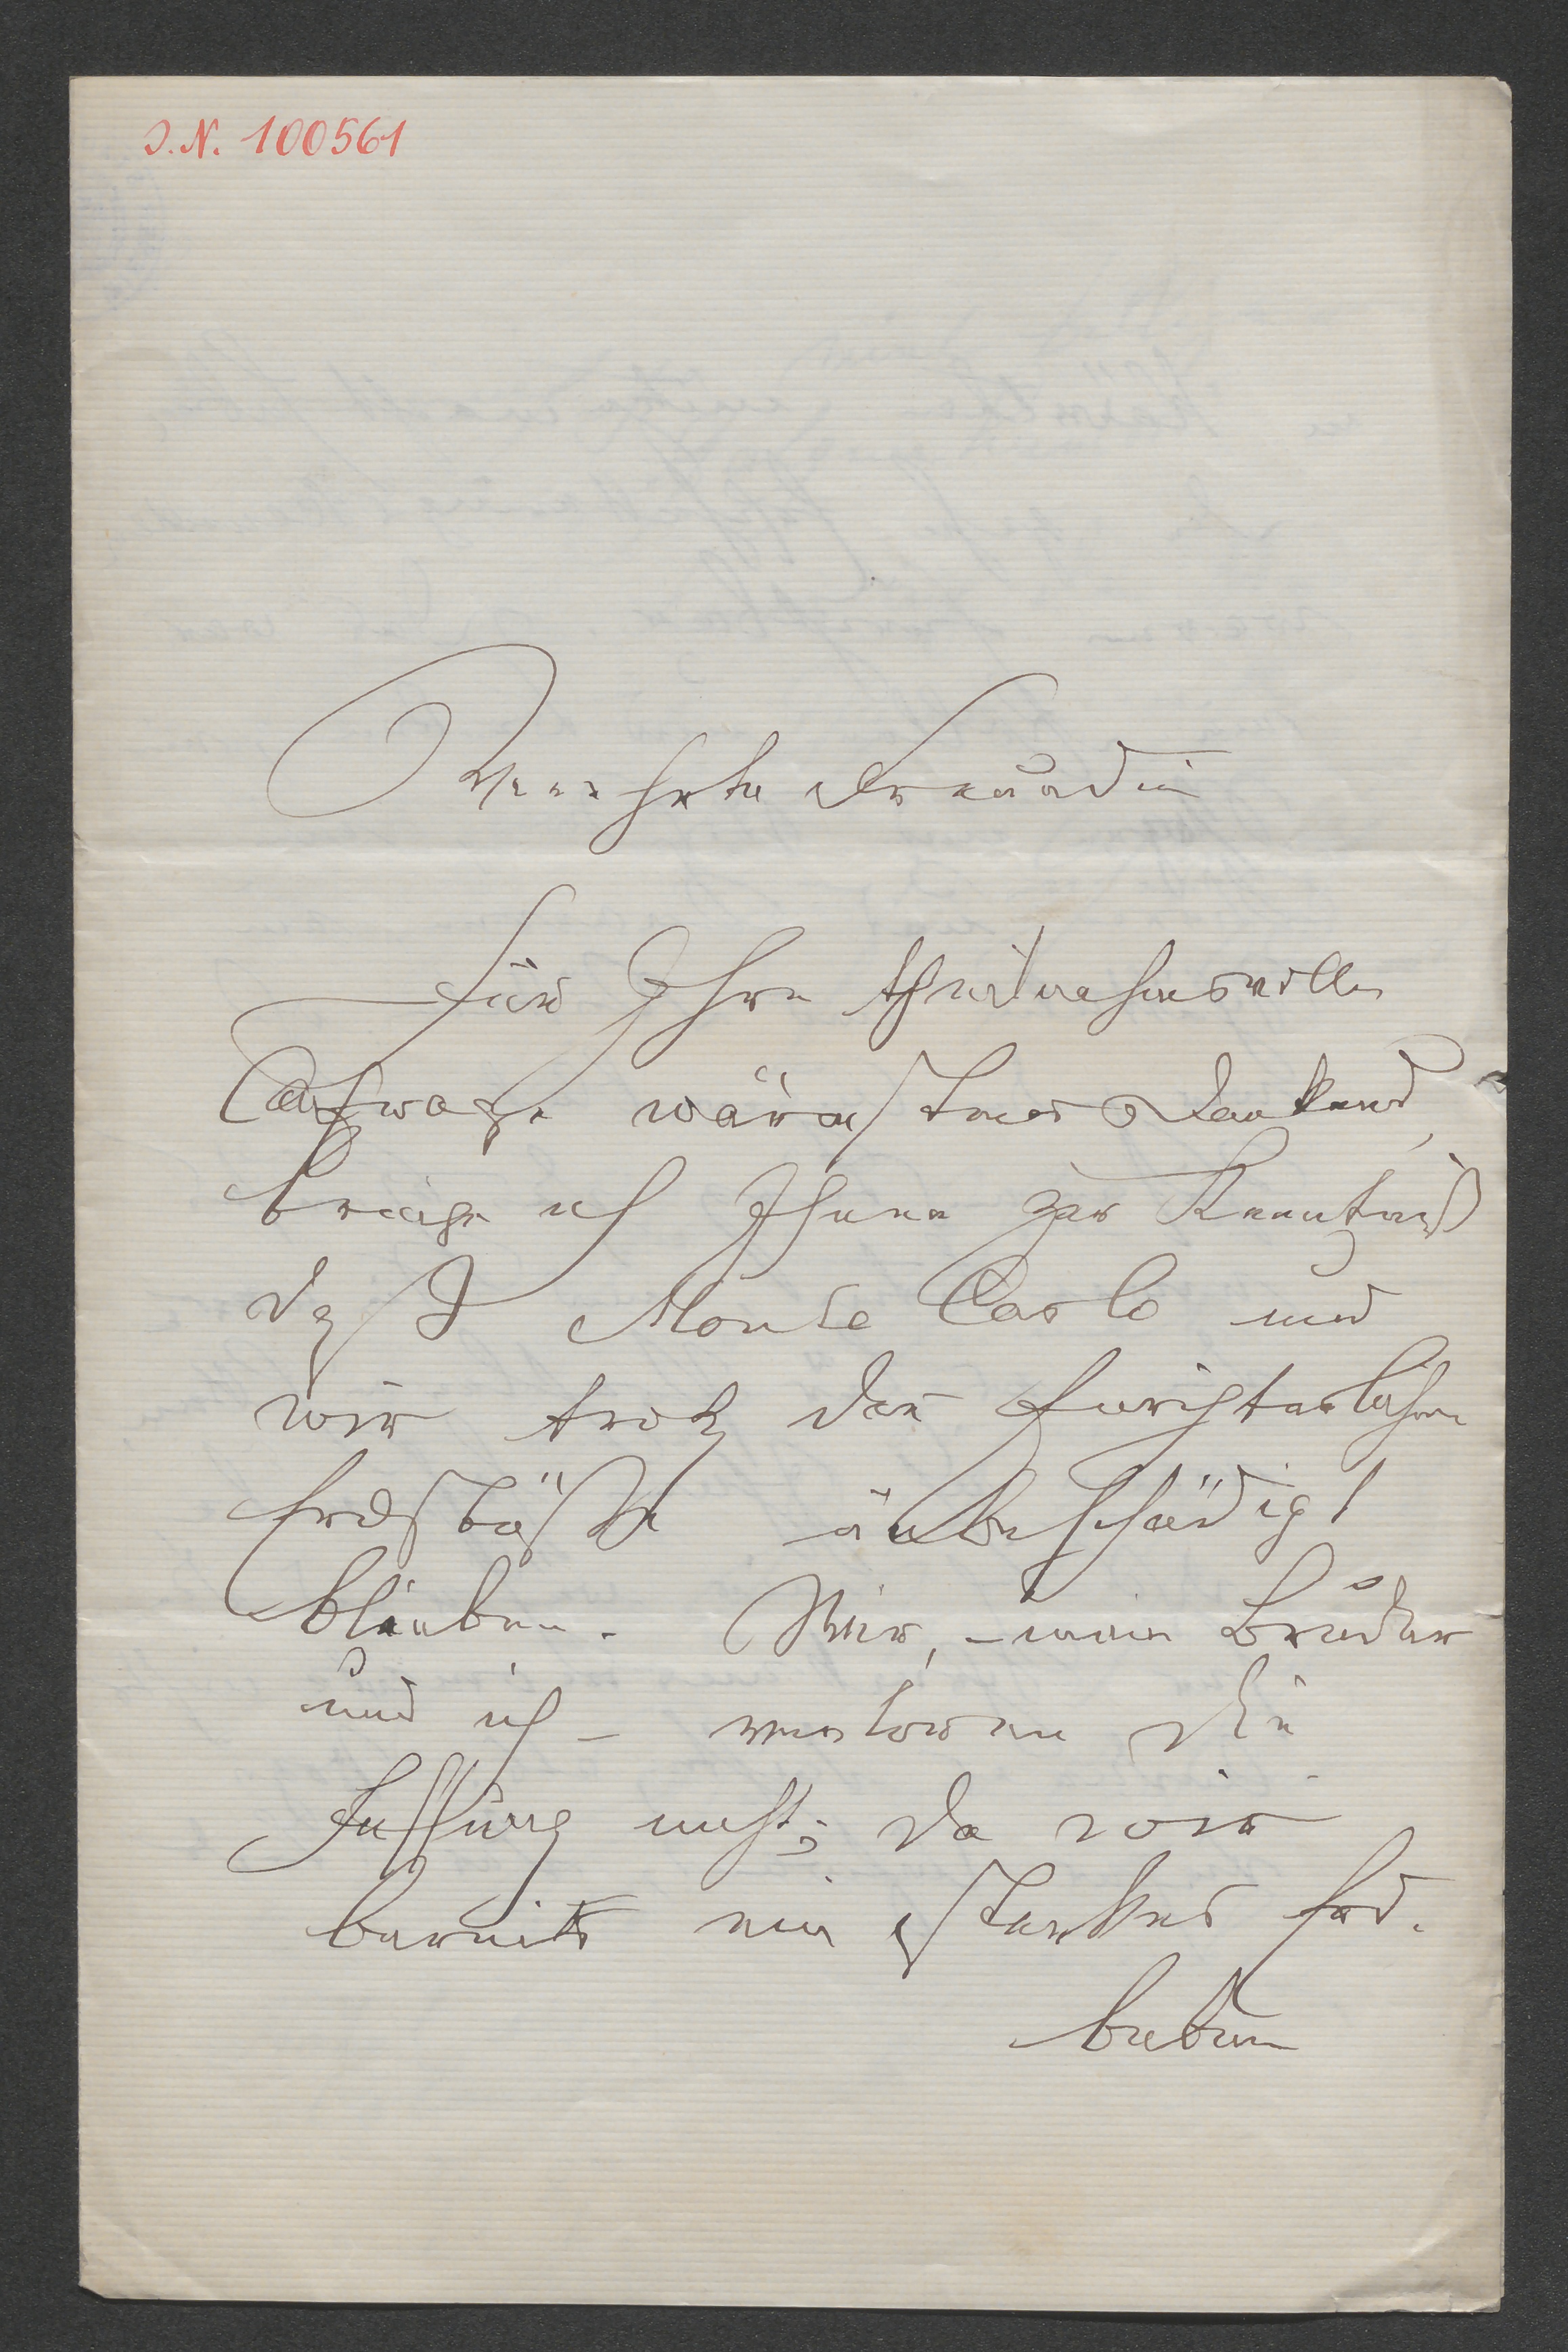 J.N. 100561
Verehrte Freundin
Für Ihre theilnahmsvolle
Anfrage wärmstens dankend,
bringe ich Ihnen zur Kenntniß
daß Monte Carlo und
wir trotz der furchterlichen
Erdstöße unbeschädigt
blieben. Wir, – mein Bruder
und ich – verloren die
Fassung nicht; da wir
bereits ein starkes Erd-
beben